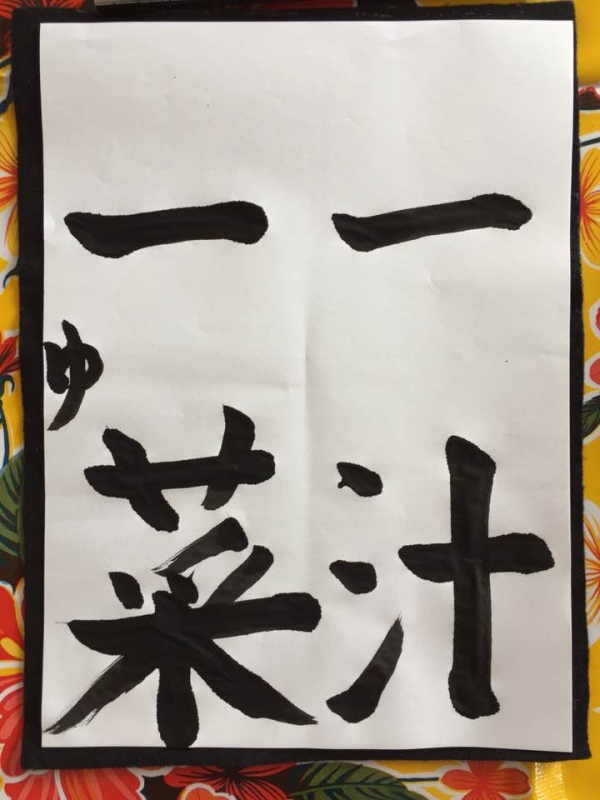 一汁
一菜
ゆ